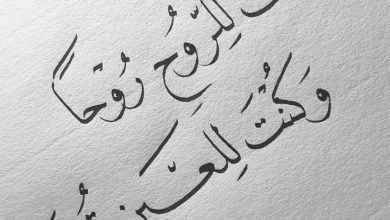 لِلرُّوحِ رُوْحاً
وَكُنْتَ لِلعَيـنِ